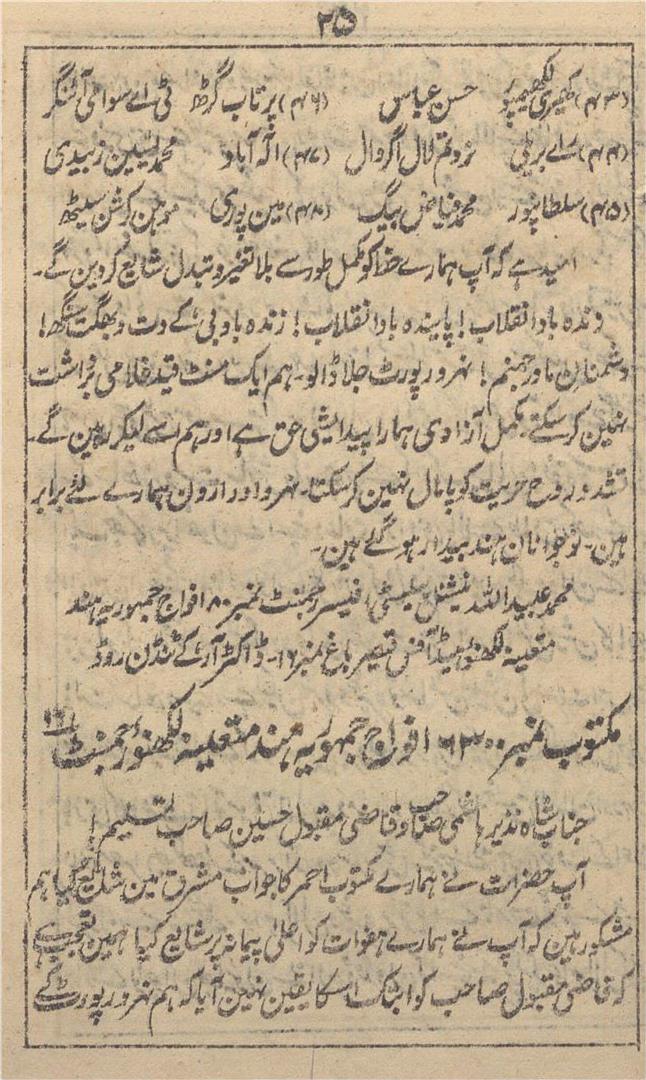 ۲۵
(۴۳) کھیری لکھیمپور حسن عباس (۴۶) پرتاب گڑھ ٹی اے سوامی آئنگر
(۴۴) رائے بریلی نروتم لال اگروال (۴۷) الہ آباد محمد یٰسین زبیدی
(۴۵) سلطانپور محمد فیاض بیگ (۴۸) مین پوری موہن کرشن سیٹھ
امید ہے کہ آپ ہمارے خط کو مکمل طور سے بلا تغیر و تبدل شایع کر دین گے۔
زندہ باد انقلاب! پایندہ باد انقلاب! زندہ باد بی کے دت و بھگت سنگھ!
دشمنان مادر جہنم! نہرو رپورٹ جلا ڈالو۔ ہم ایک منٹ قید غلامی برداشت
نہین کر سکتے۔ مکمل آزادی ہمارا پیدایشی حق ہے اور ہم اسے لیکر رہین گے۔
تشدد روح حریت کو پامال نہین کر سکتا۔ نہرو اور ارون ہمارے لئے برابر
ہین۔ نوجوانان ہند بیدار ہو گئے ہین۔
محمد عبید اللہ نیشنل پبلسٹی افیسر رجمنٹ نمبر ۸۰ افواج جمہوریہ ہند
متعینہ لکھنؤ ہیڈ آفس قیصر باغ نمبر ۱۶۔ ڈاکٹر آر کے ٹنڈن روڈ
مکتوب نمبر ۶۳۰۰ افواج جمہوریہ ہند متعینہ لکھنؤ رجمنٹ
جناب شاہ نذیر ہاشمی صاحب و قاضی مقبول حسین صاحب تسلیم!
آپ حضرات نے ہمارے مکتوب احمر کا جواب مشرق مین شایع کیا ہم
مشکور ہین کہ آپ نے ہمارے ہفوات کو اعلیٰ پیمانہ پر شایع کیا ہمین تعجب ہے
کہ قاضی مقبول صاحب کو ابتک اسکا یقین نہین آیا کہ ہم نہرو رپورٹ کے